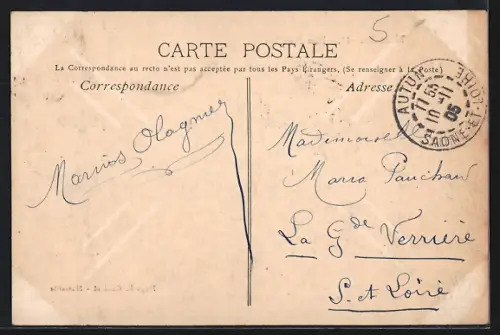 5
CARTE POSTALE
La Correspondance au recto n'est pas acceptée par tous les Pays Étrangers, (Se renseigner à la Poste)
Correspondance
Adresse
AUTUN
SAÔNE-ET-LOIRE
05
Mademoiselle
Maria
Marius Olagnier
La Gde Verrière
S. et Loire